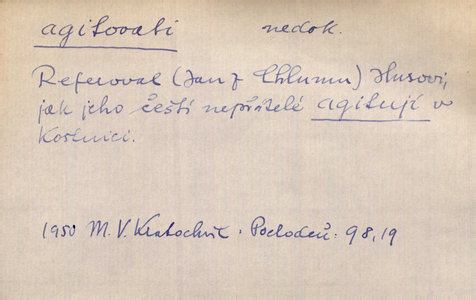 agitovati nedok.
Referoval (Jan z Chlumu) Husovi,
jak jeho čeští nepřátelé agitují v
Kostnici.
1950 M. V. Kratochvíl. Pochodeň: 98,19